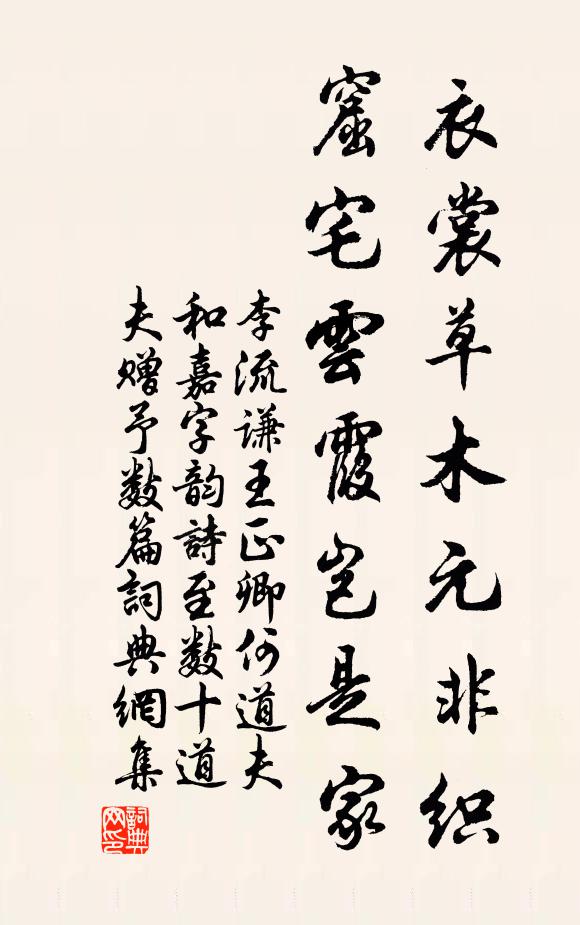 衣裳草木元非织
窟宅雲霞岂是家
李流谦王正卿何道夫
和嘉字韵詩至数十道
夫赠予数篇詞典網集
詞典
网印